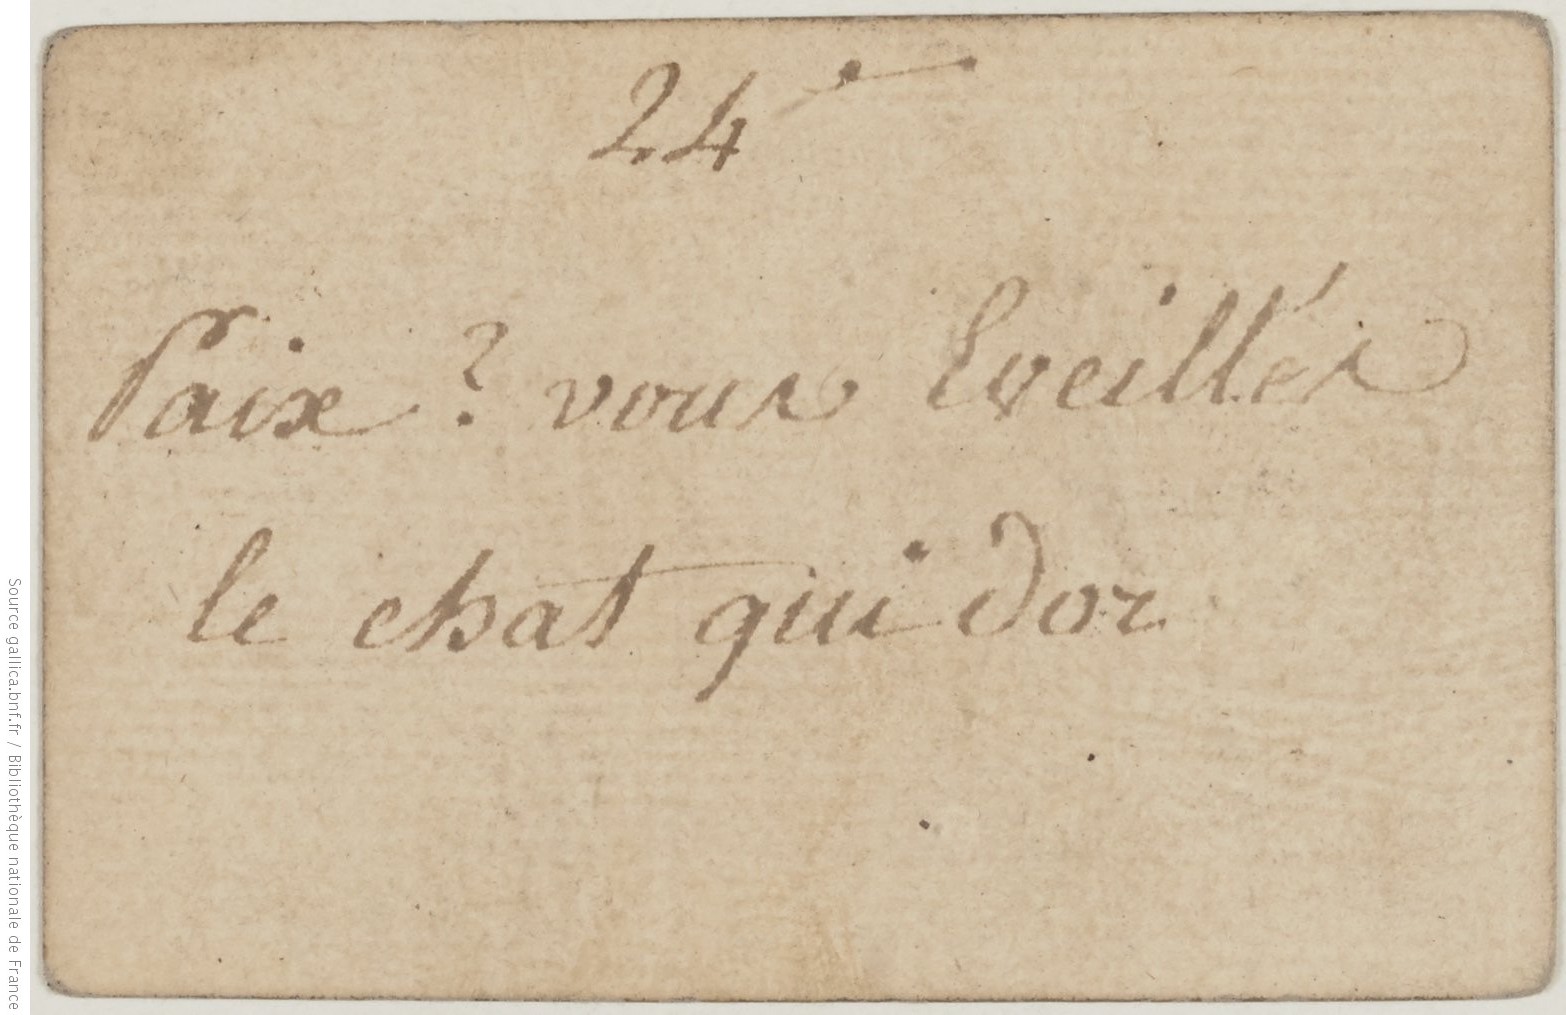 24
Paix ? vous Eveillés
le chat qui dor
Source gallica.bnf.fr / Bibliothèque nationale de France